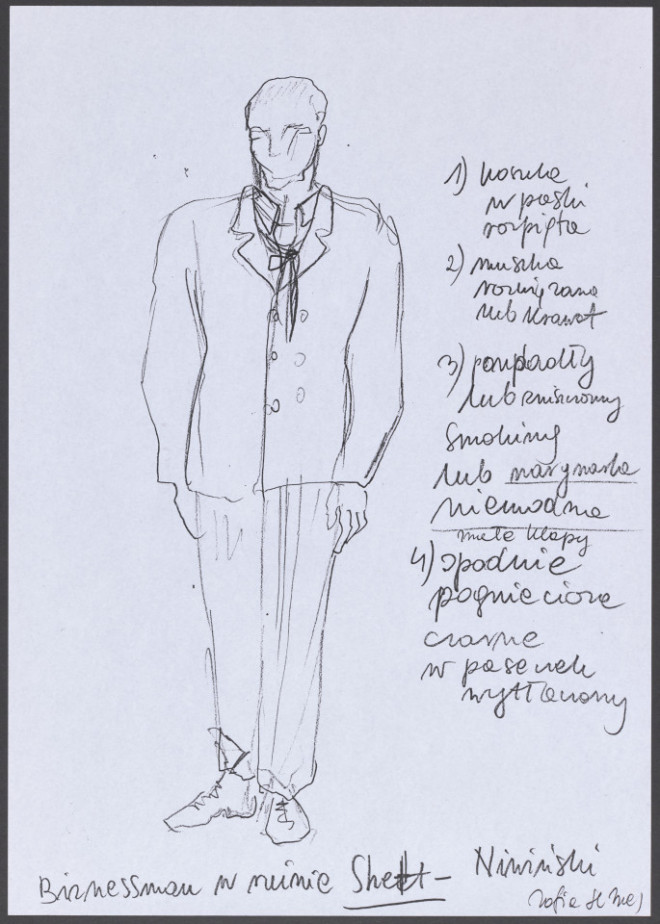 1) koszula
w paski
rozpięta
2) muszka
rozwiązana
lub krawat
3) rozpadły
lub zniszczony
smoking
lub marynarka
niemodna
małe klapy
4) spodnie
pogniecione
czarne
w paseczek
wytłaczony
Biznessman w ruinie Shett - Niwiński
Zofia de Ines